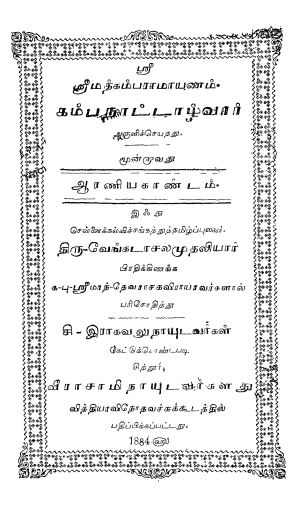 ஸ்ரீ
ஸ்ரீமத்கம்பராமாயணம்.
கம்பநாட்டாழ்வார்
அருளிச்செய்தது.
மூன்றாவது
ஆரணியகாண்டம்.
இஃது
சென்னைக்கல்விச்சங்கத்துத்தமிழ்ப்புலவர்
திரு-வேங்கடாசலமுதலியார்
பிரதிக்கிணங்க
க-பு-ஸ்ரீமாந்-தெவராசகவிராயரவர்களால்
பரிசோதித்து
சி-இராகவலுநாயுடவர்கள்
கேட்டுக்கொண்டபடி
சித்தூர்,
விராசாமிநாயுடவர்களது
வித்தியவிநோதவச்சுக்கூடத்தில்
பதிப்பிக்கப்பட்டது.
1884 ௵